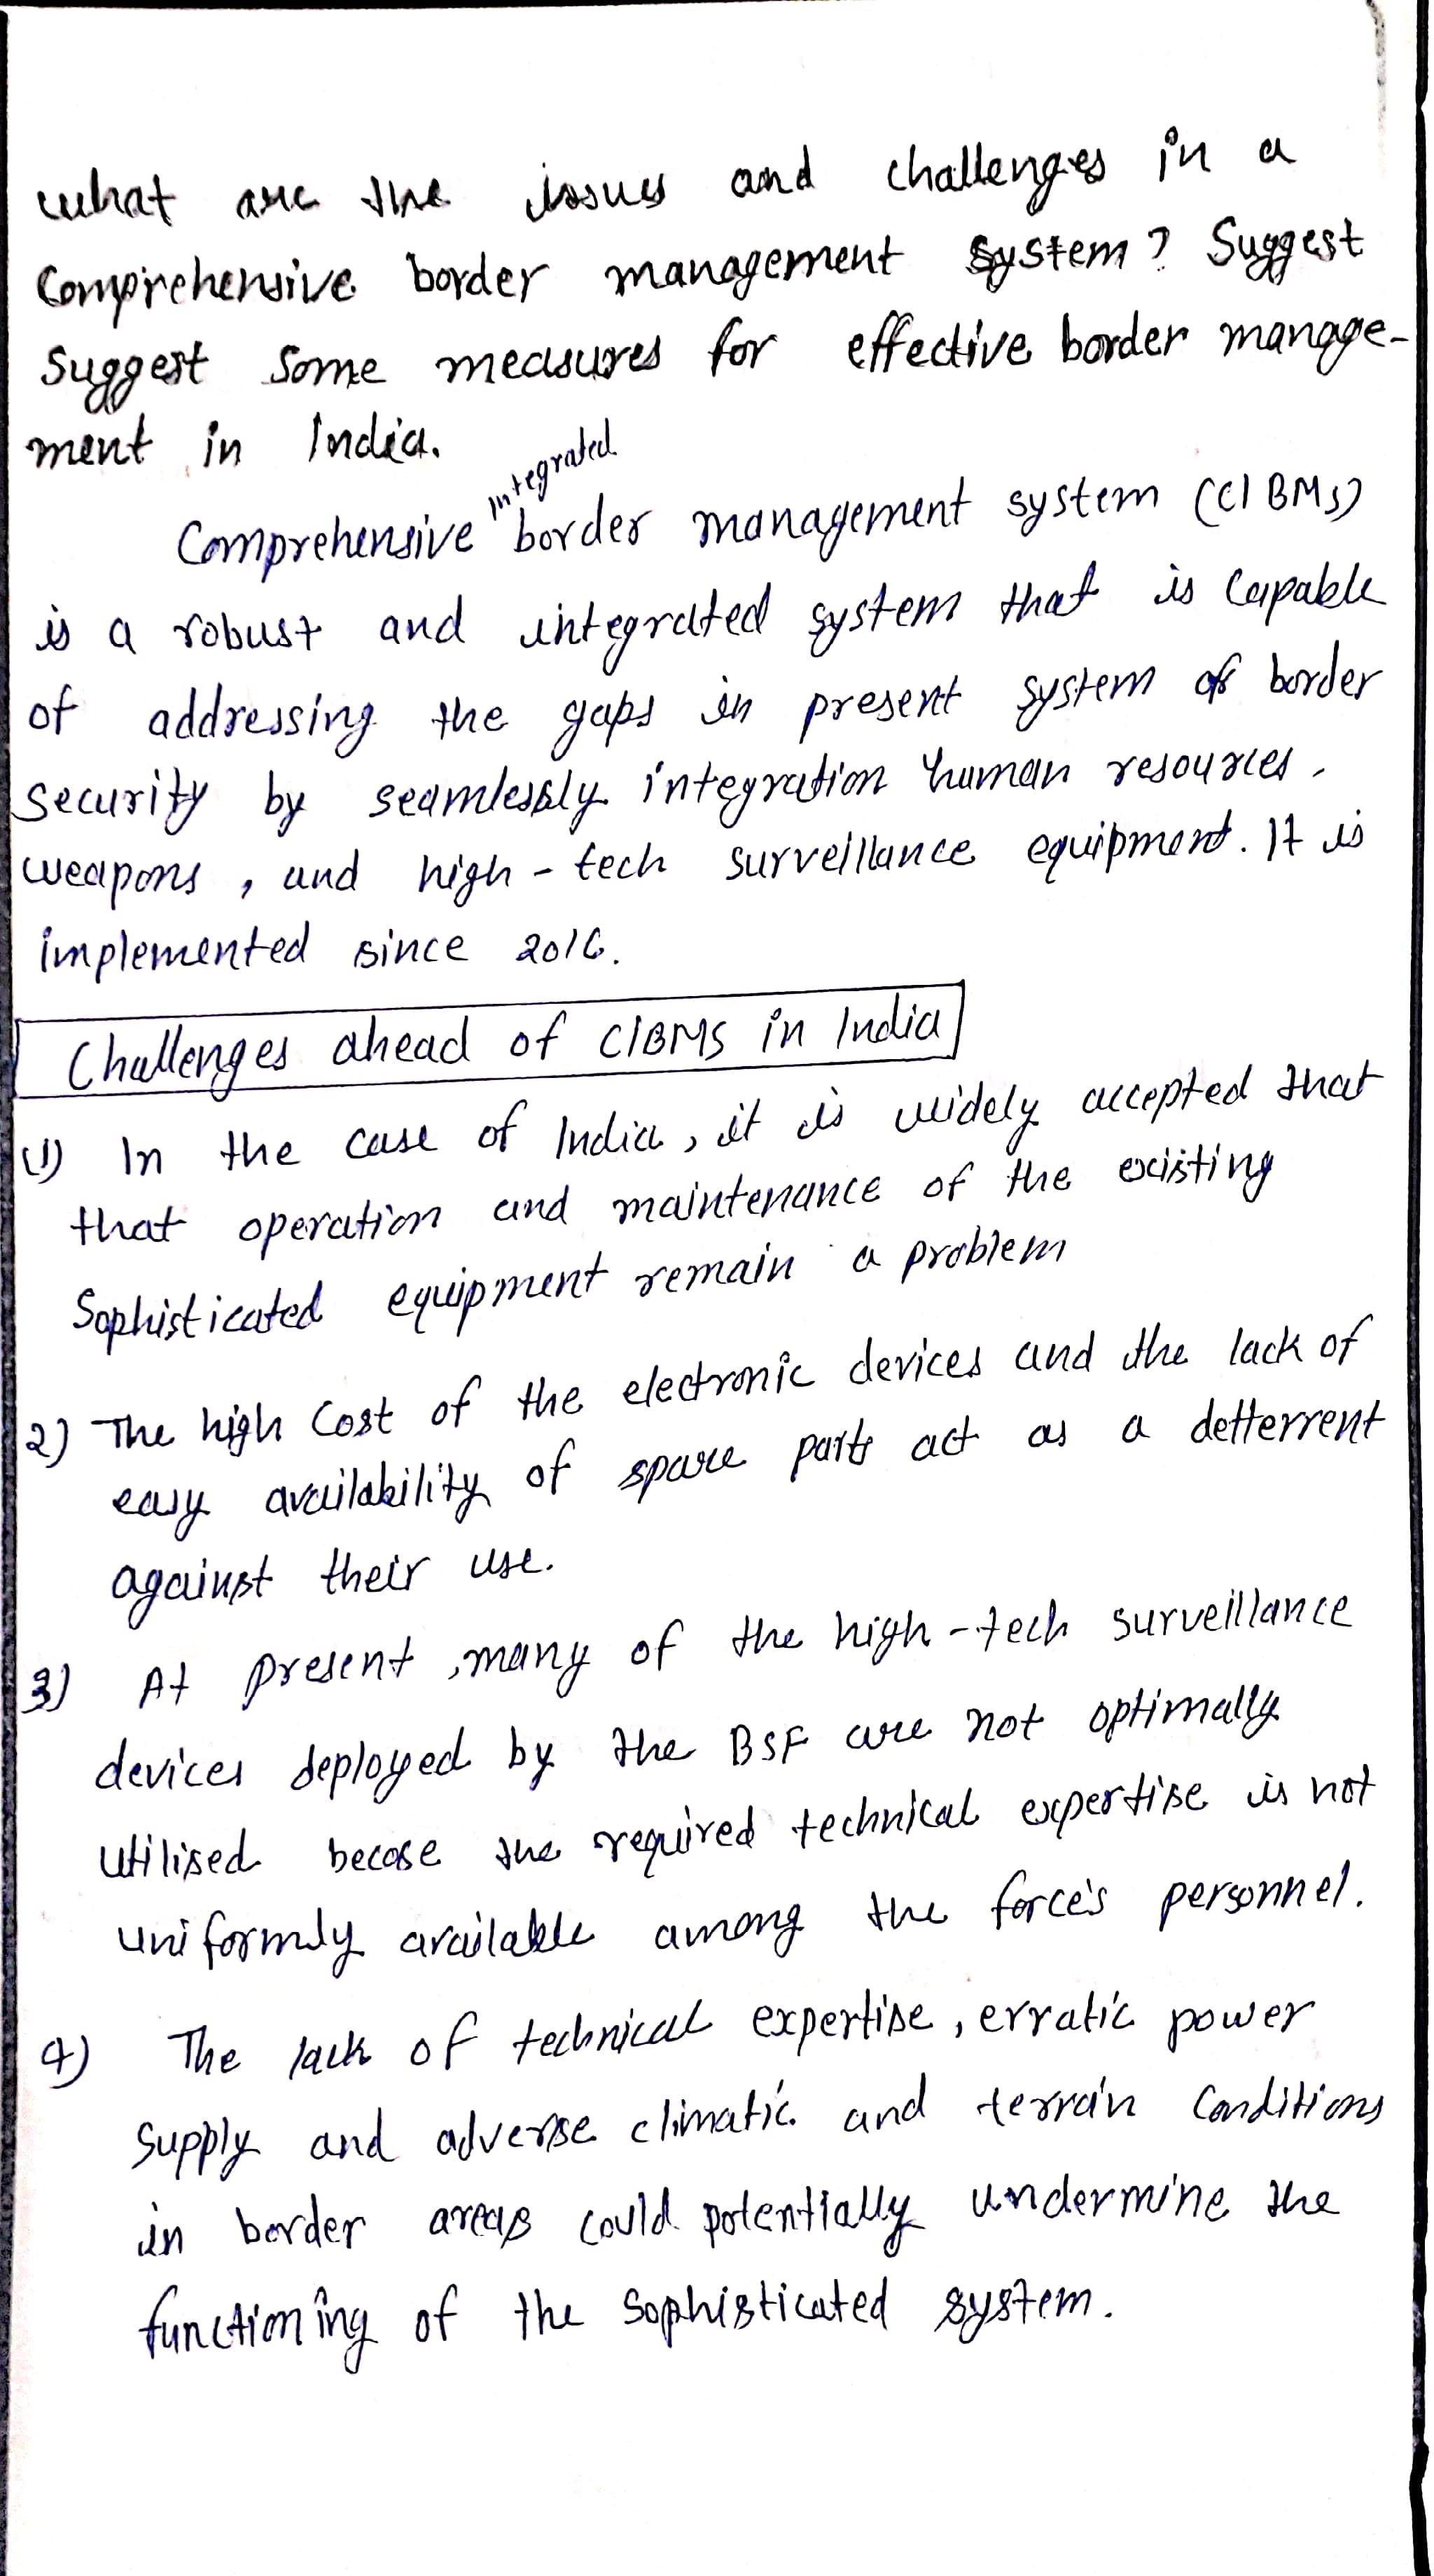 what are the issues and challenges in a
Comprehensive border management system? Suggest
Suggest some measures for effective border manage-
ment in India.
integrated
Comprehensive border management system (CIBMS)
is a robust and integrated system that is capable
of addressing the gaps in present system of border
security by seamlessly integration human resources,
weapons, and high-tech surveillance equipment. It is
implemented since 2016.
Challenges ahead of CIBMS in India
(1) In the case of India, it is widely accepted that
that operation and maintenance of the existing
Sophisticated equipment remain a problem
2) The high cost of the electronic devices and the lack of
easy availability of spare parts act as a detterrent
against their use.
3) At present, many of the high-tech surveillance
devices deployed by the BSF are not optimally
utilised becose the required technical expertise is not
uniformly available among the force's personnel.
4) The lack of technical expertise, erratic power
supply and adverse climatic and terrain conditions
in border areas could potentially undermine the
functioning of the sophisticated system.